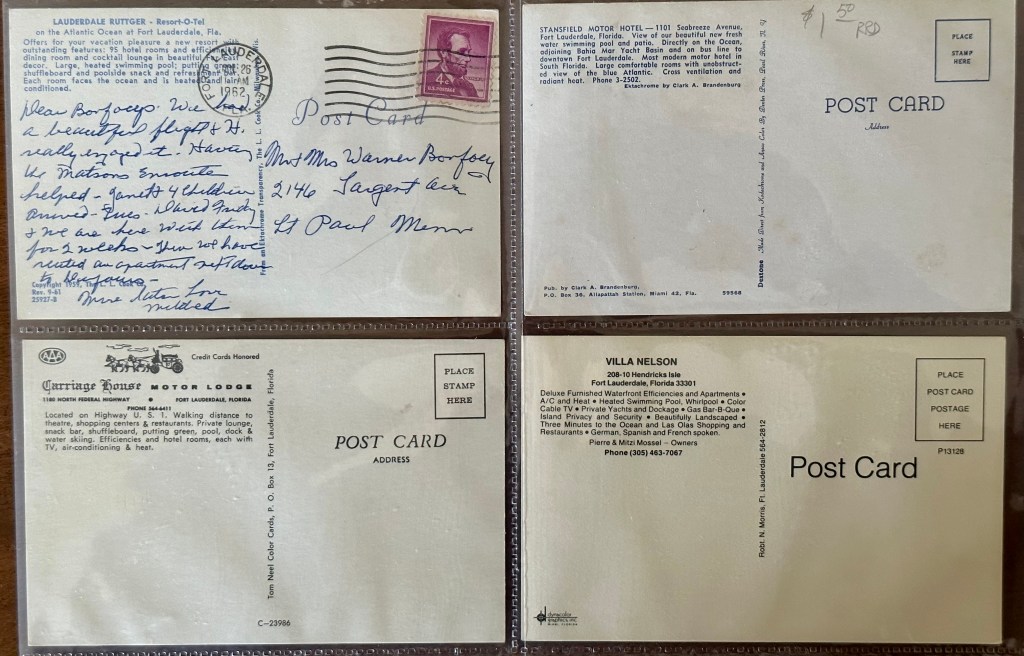 LAUDERDALE RUTTGER - Resort-O-Tel
on the Atlantic Ocean at Fort Lauderdale, Fla.
Offers for your vacation pleasure a new resort with
outstanding features: 95 hotel rooms and
dining room and cocktail lounge in beautiful
decor. Large, heated swimming pool; putting
shuffleboard and poolside snack and
Each room faces the ocean and is heated and air
conditioned.
FORT LAUDERDALE
26
AM
1962
FLA.
4¢
U.S. POSTAGE
LINCOLN
Post Card
Dear Borfoeys - We had
a beautiful flight & H.
really enjoyed it. Having
the Matsons Enroute
helped - Janet & 4 Children
arrived - Tues. David
& we are here with them
for 2 weeks - Then we have
rented an apartment next door
to
More later Love
Mildred
Mr & Mrs Warner Borfoey
2146 Sargent Ave
St Paul Minn
From an Ektachrome Transparency, The L. L. Cook Co.
Copyright 1959, The L. L. Cook Co.
Rev. 9-61
25937-B
STANSFIELD MOTOR HOTEL — 1101 Seabreeze Avenue,
Fort Lauderdale, Florida. View of our beautiful new fresh
water swimming pool and patio. Directly on the Ocean,
adjoining Bahia Mar Yacht Basin and on bus line to
downtown Fort Lauderdale. Most modern motor hotel in
South Florida. Large comfortable rooms with unobstruct-
ed view of the blue Atlantic. Cross ventilation and
radiant heat. Phone 3-2502.
Ektachrome by Clark A. Brandenburg
$1.50
RRD
PLACE
STAMP
HERE
POST CARD
Address
Dextone Made Direct from Kodachrome and Ansco Color By Dexter Press, Pearl River, N. Y.
Pub. by Clark A. Brandenburg,
P.O. Box 36, Allapattah Station, Miami 42, Fla.
59568
AAA
Credit Cards Honored
Carriage House MOTOR LODGE
1180 NORTH FEDERAL HIGHWAY • FORT LAUDERDALE, FLORIDA
PHONE 564-6411
Located on Highway U. S. 1. Walking distance to
theatre, shopping centers & restaurants. Private lounge,
snack bar, shuffleboard, putting green, pool, dock &
water skiing. Efficiencies and hotel rooms, each with
TV, air-conditioning & heat.
Tom Neel Color Cards, P. O. Box 13, Fort Lauderdale, Florida
PLACE
STAMP
HERE
POST CARD
ADDRESS
C-23986
VILLA NELSON
208-10 Hendricks Isle
Fort Lauderdale, Florida 33301
Deluxe Furnished Waterfront Efficiencies and Apartments •
A/C and Heat • Heated Swimming Pool, Whirlpool • Color
Cable TV • Private Yachts and Dockage • Gas Bar-B-Que •
Island Privacy and Security • Beautifully Landscaped •
Three Minutes to the Ocean and Las Olas Shopping and
Restaurants • German, Spanish and French spoken.
Pierre & Mitzi Mossel – Owners
Phone (305) 463-7067
Robt. N. Morris, Ft. Lauderdale 564-2812
PLACE
POST CARD
POSTAGE
HERE
P13128
Post Card
dynacolor
graphics, inc.
MIAMI, FLORIDA